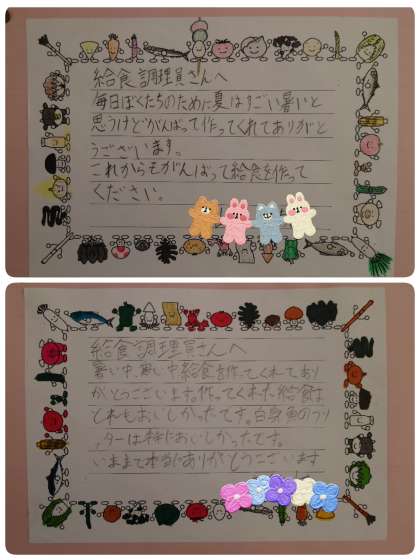 給食調理員さんへ
毎日ぼくたちのために夏はすごい暑いと
思うけどがんばって作ってくれてありがと
うございます。
これからもがんばって給食を作って
ください。
給食調理員さんへ
暑い中、寒い中給食を作ってくれてあり
がとうございます。作ってくれた給食は
とてもおいしかったです。白身魚のフリ
ッターは特においしかったです。
いままで本当にありがとうございます